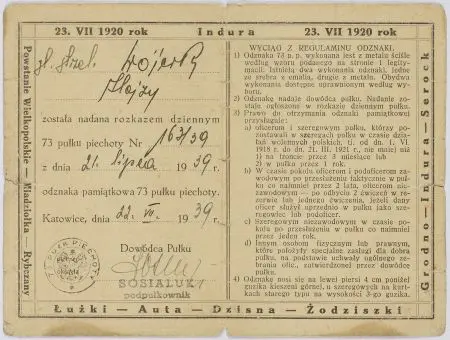 23. VII 1920 rok
Indura
23. VII 1920 rok
Powstanie Wielkopolskie — Miadziołka — Rybczany
została nadana rozkazem dziennym
73 pułku piechoty Nr 163/39
z dnia 21. lipca 1939 r.
odznaka pamiątkowa 73 pułku piechoty.
Katowice, dnia 22. VII. 1939.
Dowódca Pułku
SOSIALUK
podpułkownik
WYCIĄG Z REGULAMINU ODZNAKI.
1) Odznaka 73 p. p. wykonana jest z metalu ściśle
według wzoru podanego na stronie I legity-
macji. Istnieją dwa wykonania odznaki, jedne
ze srebra z emalią, drugie z metalu. Obydwa
wykonania dostępne uprawnionym według wy-
boru.
2) Odznakę nadaje dowódca pułku. Nadanie zo-
staje ogłoszone w rozkazie dziennym pułku.
3) Prawo do otrzymania odznaki pamiątkowej
przysługuje:
a) oficerom i szeregowym pułku, którzy po-
zostawali w szeregach pułku w czasie dzia-
łań wojennych polskich, tj. od dn. 1. VI.
1918 r. do dn. 21. III. 1921 r., nie mniej niż
1) na froncie przez 3 miesiące lub
2) w pułku przez 1 rok.
b) W czasie pokoju oficerom i podoficerom za-
wodowym po przesłużeniu faktycznie w puł-
ku co najmniej przez 2 lata, oficerom nie-
zawodowym — po odbyciu 2 ćwiczeń w re-
zerwie lub jednego ćwiczenia, jeżeli dany
oficer służył uprzednio w pułku jako sze-
regowiec lub podoficer.
c) Szeregowym niezawodowym w czasie poko-
ju po przesłużeniu w pułku co najmniej
przez jeden rok.
d) Innym osobom fizycznym lub prawnym,
które położyły specjalne zasługi dla dobra
pułku, na podstawie uchwały ogólnego ze-
brania ofic., zatwierdzonej przez dowódcę
pułku.
4) Odznakę nosi się na lewej piersi 4 cm poniżej
guzika kieszeni górnej, u szeregowych na kurt-
kach starego typu na wysokości 3-go guzika.
Grodno — Indura — Serock
Łużki — Auta — Dzisna — Żodziszki